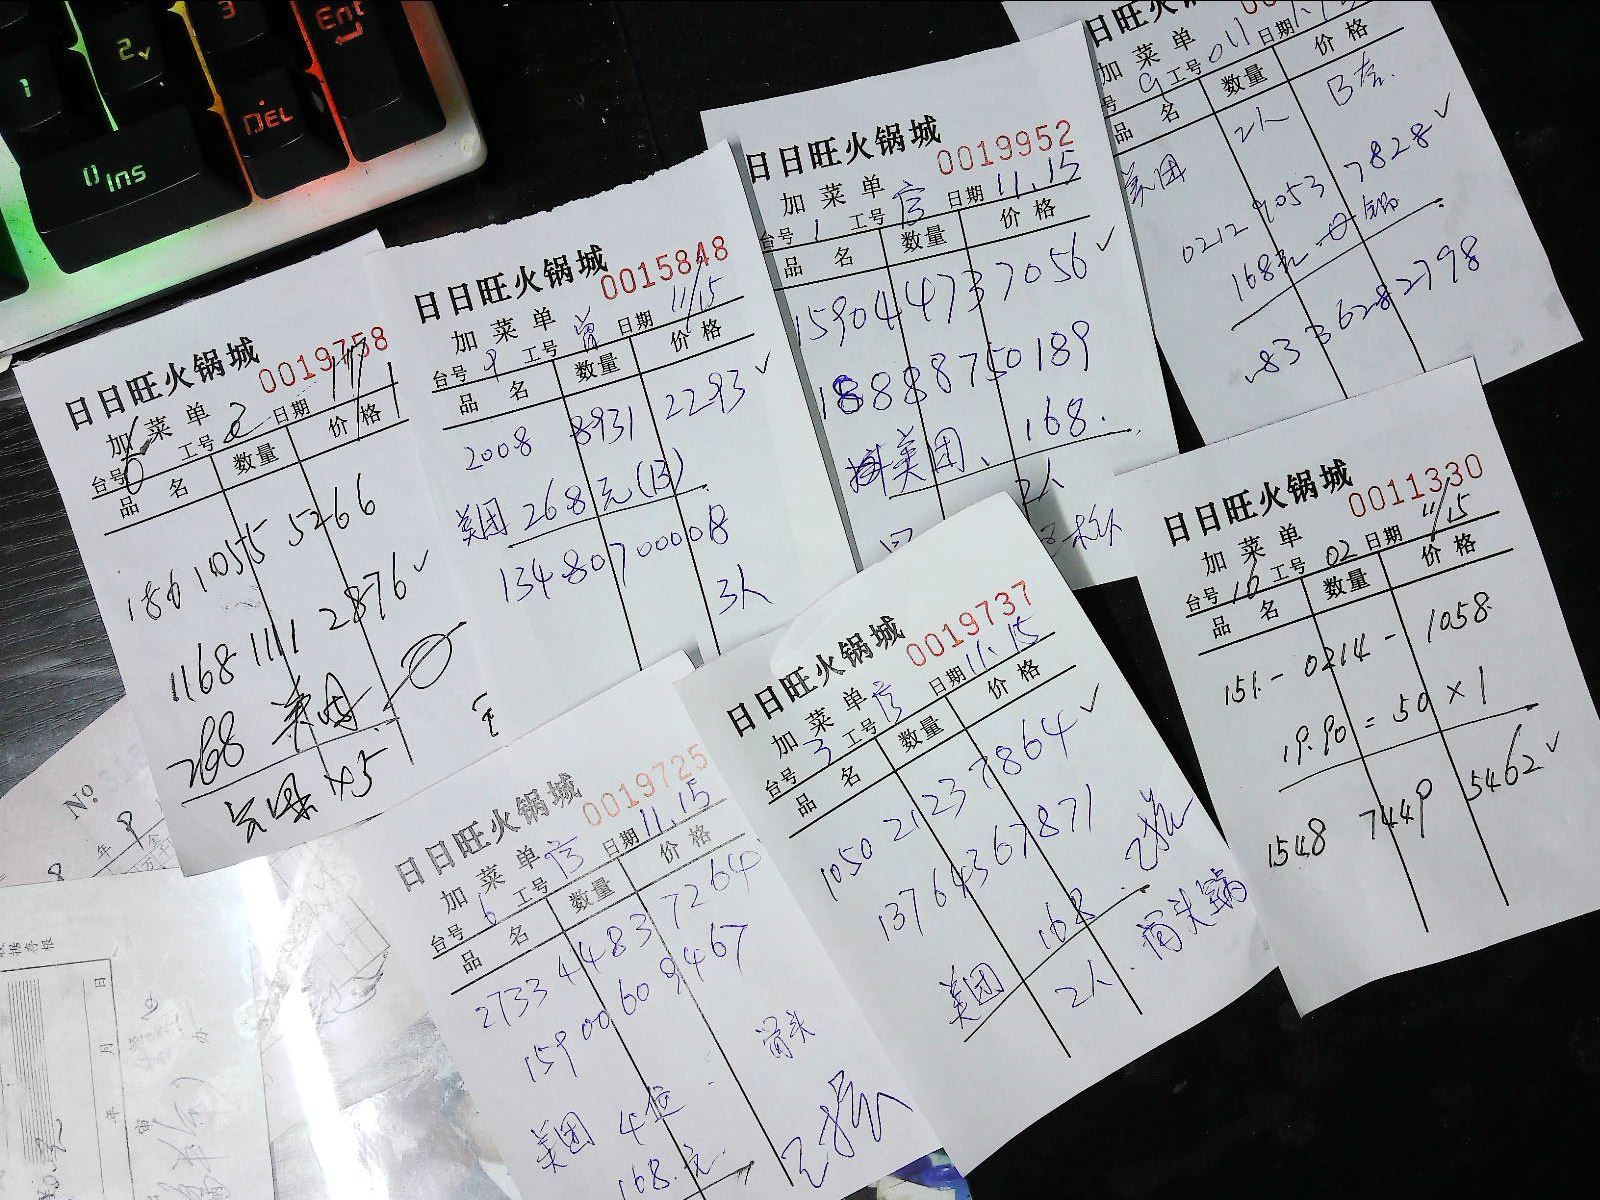 1
2
3
Ent
0 Ins
DEL
日日旺火锅城 0019758
加菜单
台号 工号 2 日期
品名 数量 价格
186 1055 5266
1168 1111 2876
268 美团
日日旺火锅城 0015848
加菜单
台号 9 工号 曾 日期 11/15
品名 数量 价格
2008 8931 2293
美团 268元(B)
13480700008
3人
日日旺火锅城 0019952
加菜单
台号 1 工号 日期 11.15
品名 数量 价格
15904473 7056
18888750189
美团、 168.
2人
日日旺火锅城
加菜单
号 9 工号 011 日期
品名 数量 价格
美团 2人 B套
0212 9053 7828
168元 锅
833 6282798
日日旺火锅城 0019725
加菜单
台号 6 工号 日期 11.15
品名 数量 价格
2733 4483 7264
15900609467
骨头
美团 4位
168.元
日日旺火锅城 0019737
加菜单
台号 3 工号 日期 11.15
品名 数量 价格
1050 2123 7864
13764367871
168
美团 2人. 骨头锅
日日旺火锅城 0011330
加菜单
台号 10 工号 02 日期 11/15
品名 数量 价格
151 - 0214 - 1058
19.90 = 50 × 1
1548 7449 5462
No
年
日
月
年
办